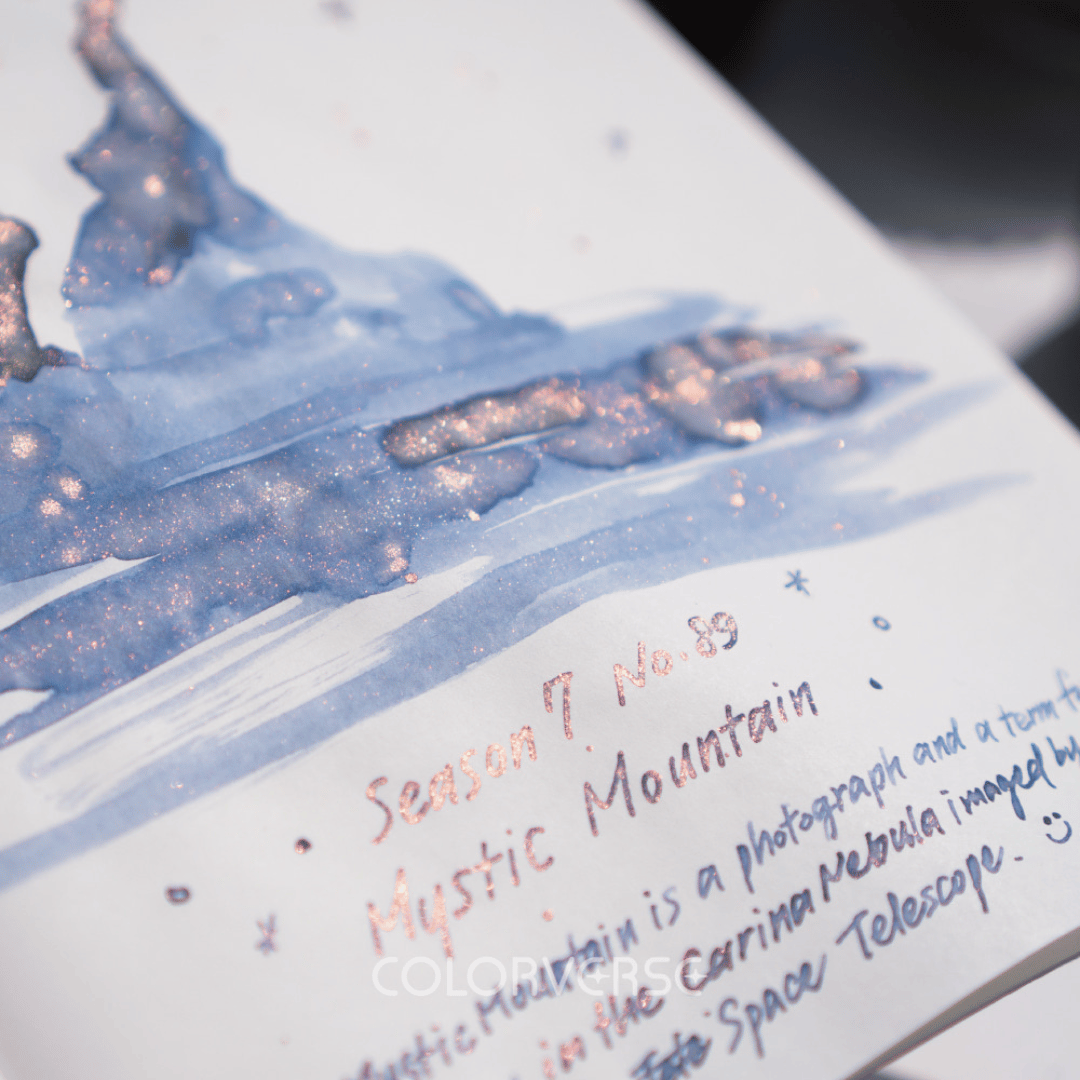 Season 7 No. 89
Mystic Mountain
Mystic Mountain is a photograph and a term
in the Carina Nebula imaged by
Space Telescope.
COLORVERSE